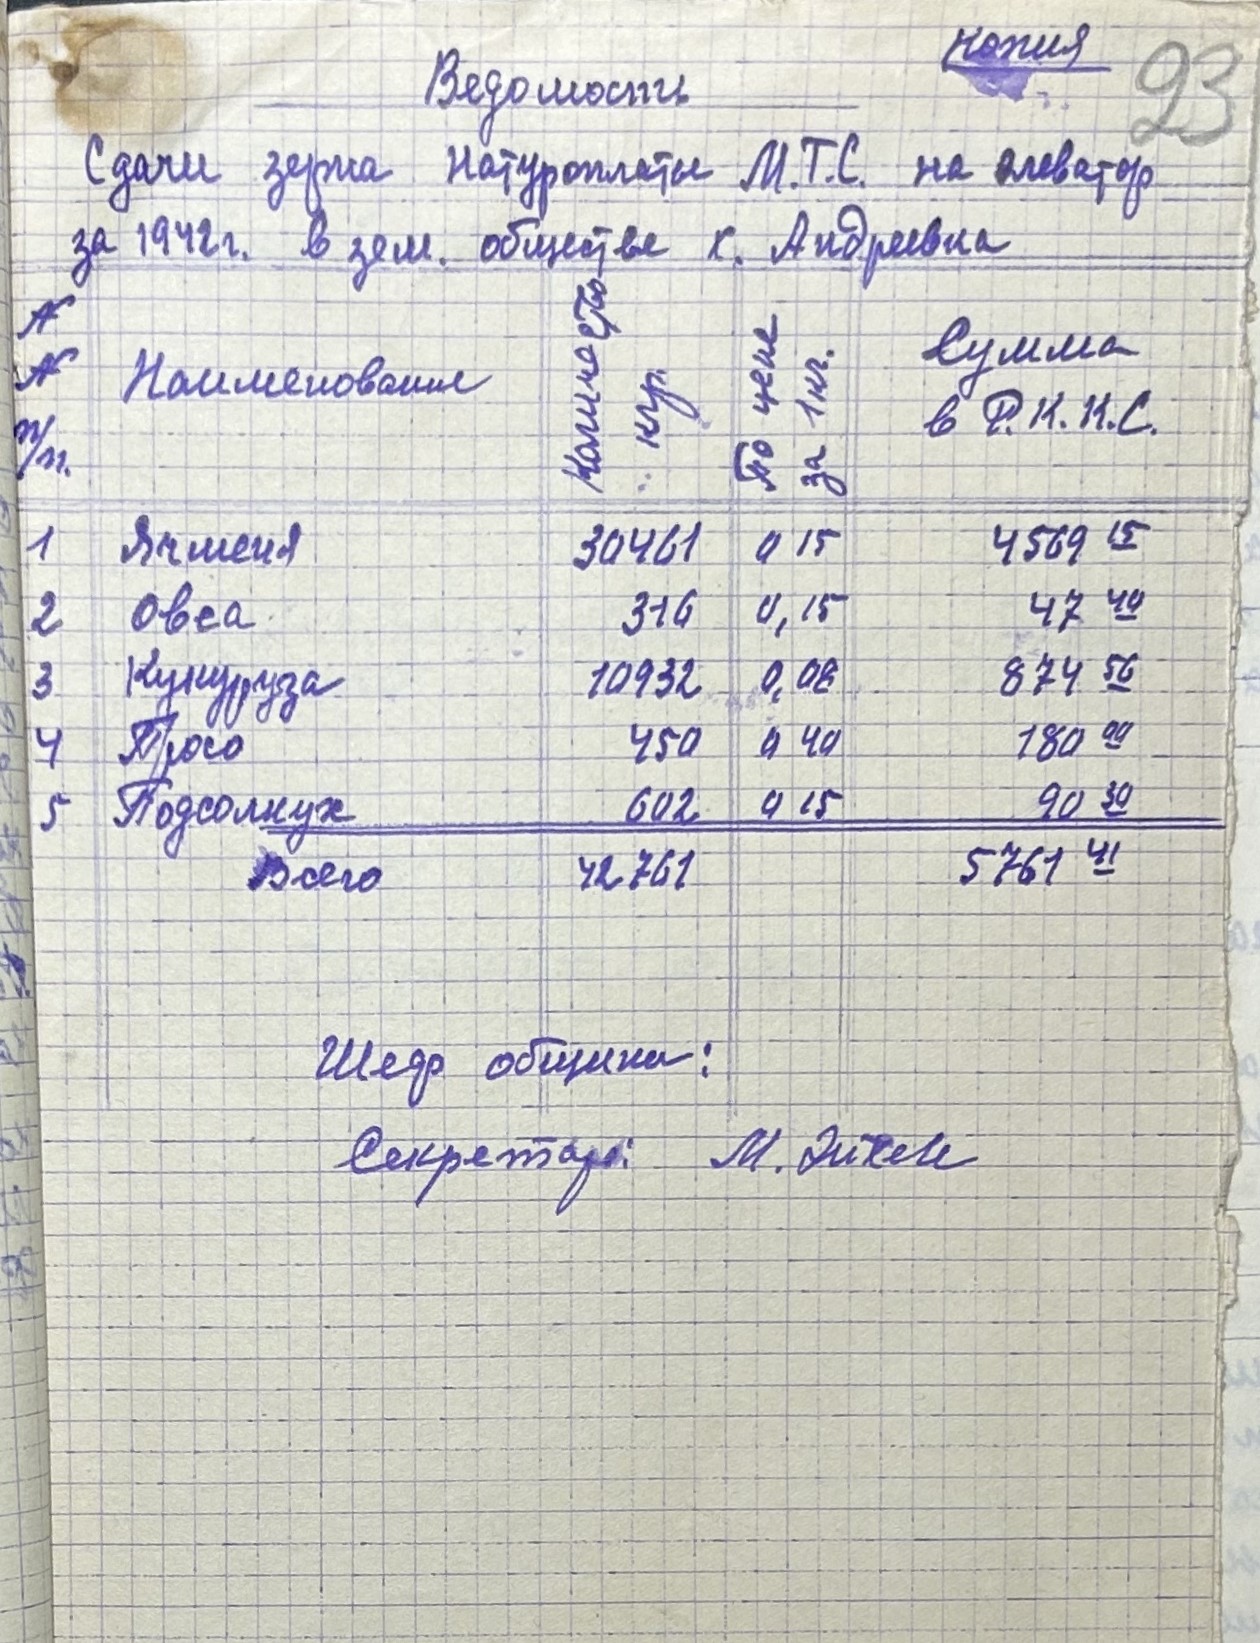 копия
93
Ведомость
Сдачи зерна Натуроплаты М.Т.С. на элеватор
за 1942г. в зем. обществе к. Андреевка
№ № п/п. Наименование Количество кгр. По цене за 1 кг. Сумма в Р.К.К.С.
1 Ячменя 30461 0 15 4569 15
2 Овса 316 0,15 47 40
3 Кукуруза 10932 0,08 874 56
4 Просо 450 0 40 180 00
5 Подсолнух 602 0 15 90 30
Всего 42761 5761 41
Шеф общины:
Секретарь: М.